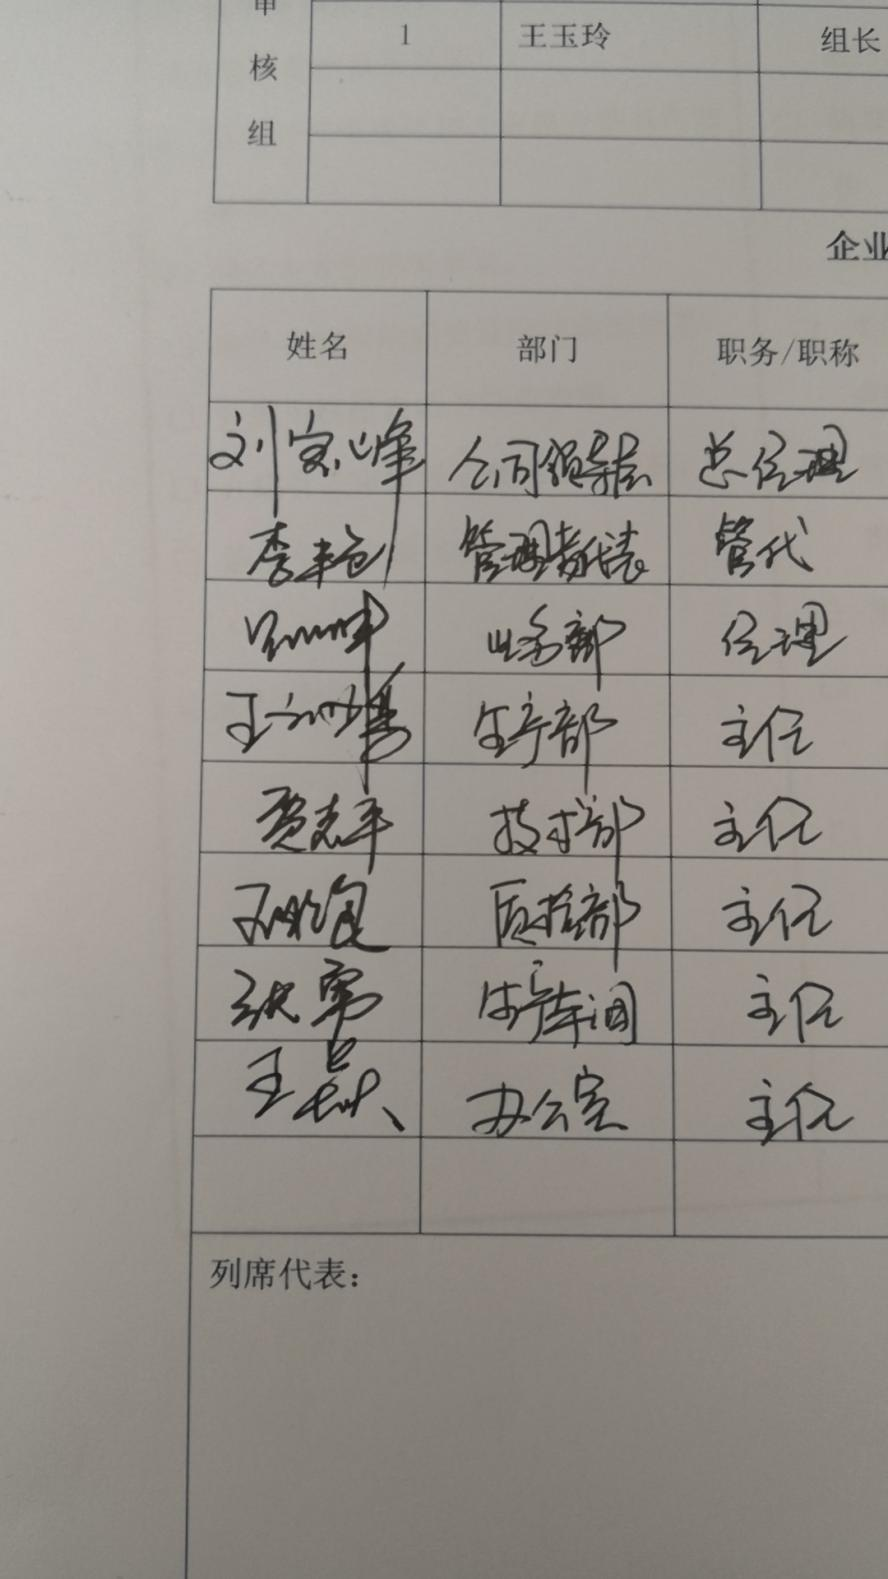 审
核
组
1 王玉玲 组长
企业
姓名 部门 职务/职称
刘宝峰 公司领导层 总经理
李丰仓 管理者代表 管代
业务部 经理
王 生产部 主任
贾志平 技术部 主任
质检部 主任
张勇 生产车间 主任
王 办公室 主任
列席代表: